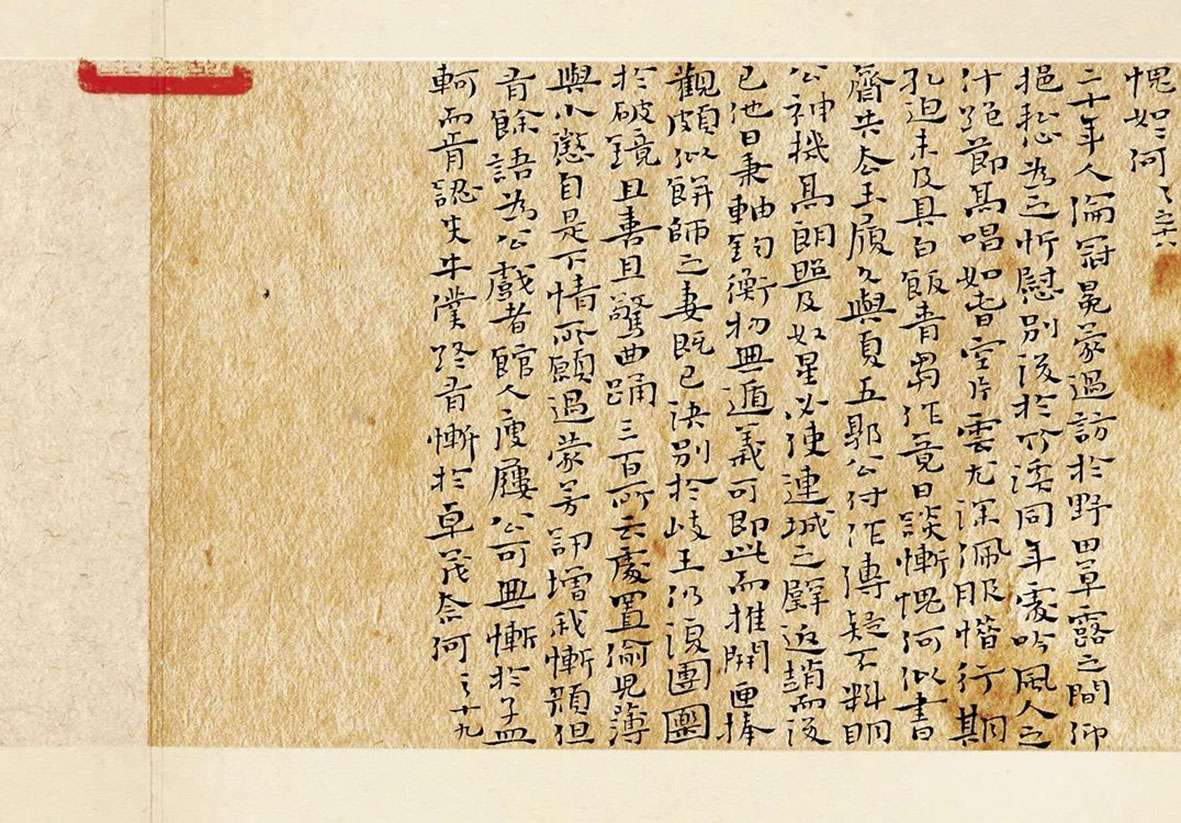 愧如何〻之六
二十年人倫冠冕蒙過訪於野田草露之間仰
挹鬆怭為之忻慰別後於竹溪同年處吟風人之
什絕節高唱如昔空片雲尤深佩服惜行期
孔迫未及具白飯青芻作竟日談慚愧何似書
齋失盃玉履久與夏五郭公付作傳疑不料明
公神機高朗照及奴星必使連城之璧返趙而後
已他日秉軸鈞衡物無遁義可即此而推開匣捧
觀頗似餅師之妻既已訣別於岐王仍復團圞
於破鏡且喜且驚曲踊三百所云處置偷兒薄
與小懲自是下情所願過蒙芳訊增我慚顏但
昔餘語為公戲者館人廋屨公可無慚於孟
軻而肯認失牛僕終昔慚於卓茂奈何〻十九